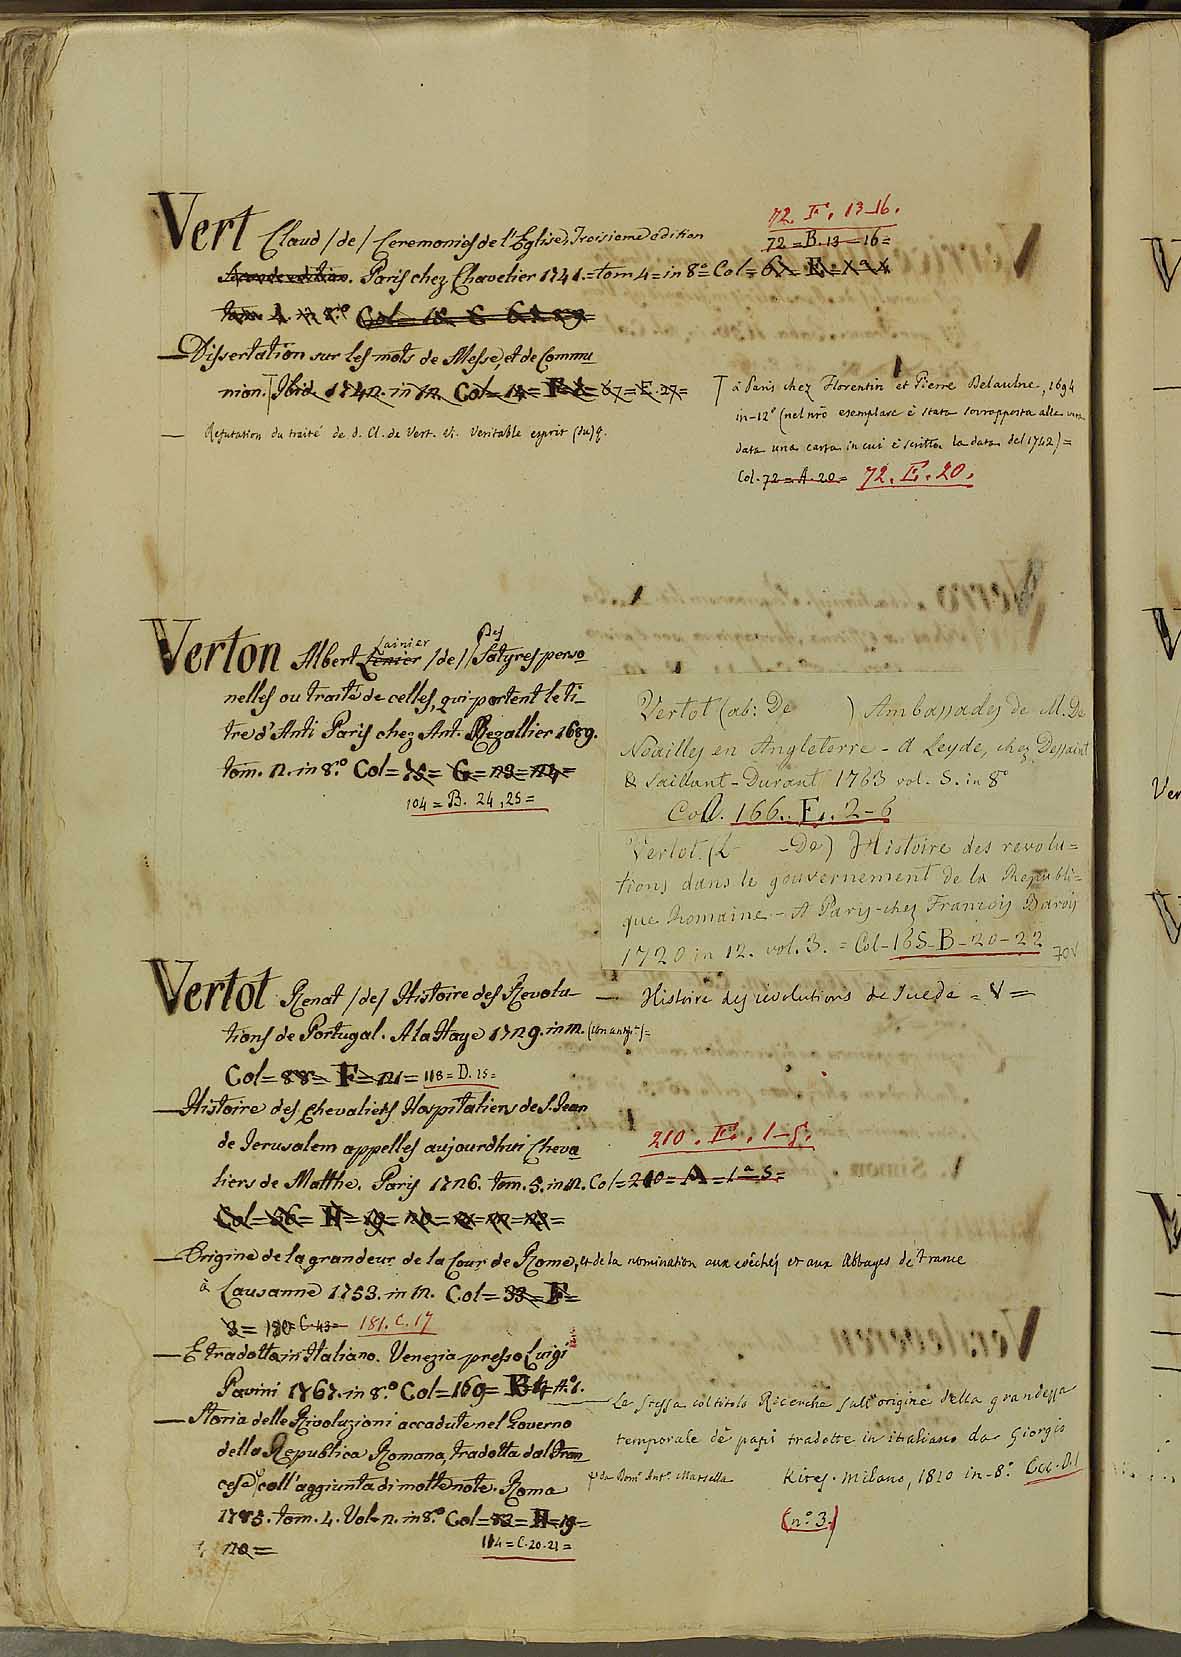 72. F. 13-16.
Vert Claud /de/ Ceremonies de l'Eglise, Troisieme edition
72=B.13-16=
Seconde edition. Paris chez Chavelier 1741.=tom 4=in 8º= Col=
Col= 18
Dissertation sur les mots de Messe, et de Commu
nion. Ibid. 1742. in 12. Col=
à Paris chez Florentin et Pierre Delaulne, 1694
in-12º (nel nrõ esemplare è stata sovrapposta alla vera
data una carta in cui è scritta la data del 1742)=
Col. 72=A.20= 72.E.20.
— Refutation du traité de d. Cl. de Vert. V. Veritable esprit (du)
Verton Albert Lenier Lainier /de/ Des Satyres perso
nelles ou traité de celles, qui portent le ti_
tre d'Anti Paris chez Ant. Rezallier 1689.
tom. 2. in 8.º Col=75= G=23=24=
104=B. 24,25=
Vertot (ab: De ) Ambassades de M. De
Noailles en Angleterre - A Leyde, chez Dessaint
& Saillant-Durant 1763 vol. 5. in 8º
Coll. 166. E. 2-6
Vertot. (L- -De) Histoire des revolu=
tions dans le gouvernement de la Republi=
que Romaine - A Paris-chez Francois Barois
1720 in 12. vol. 3. = Col-165-B-20-22
Vertot Renat /de/ Histoire des Revolu_
tions de Portugal. A la Haye 1729. in 12.
Col=88= F=121= 118=D.15=
— Histoire des revolutions de Suede = V=
— Histoire des chevaliers Hospitaliers de S. Jean
de Jerusalem appelles aujourdhui Cheva
liers de Malthe. Paris 1726. tom. 5. in 12. Col=210=A=1ª5=
210. E. 1-5.
Col=56= H=19=20=21=22=23=
— Origine de la grandeur de la Cour de Rome, et de la nomination aux evêchés et aux Abbayes de France
à Lausanne 1753. in 12. Col=33=F=
3= 180 C.43= 181.C.17
— E tradotta in Italiano. Venezia presso Luigi
Pavini 1767. in 8.º Col=169=
La stessa col titolo Ricerche sull'origine della grandezza
temporale de' papi tradotte in italiano da Giorgio
Kires. Milano, 1810 in-8º.
(nº 3.)
— Storia delle Rivoluzioni accadute nel Governo
della Republica Romana, tradotta dal Fran
cese, coll'aggiunta di molte note. Roma
da Dom. Ant.º Marsella
1785. tom. 4. Vol. 2. in 8.º Col=83=H=19=
20=
114=C.20.21=